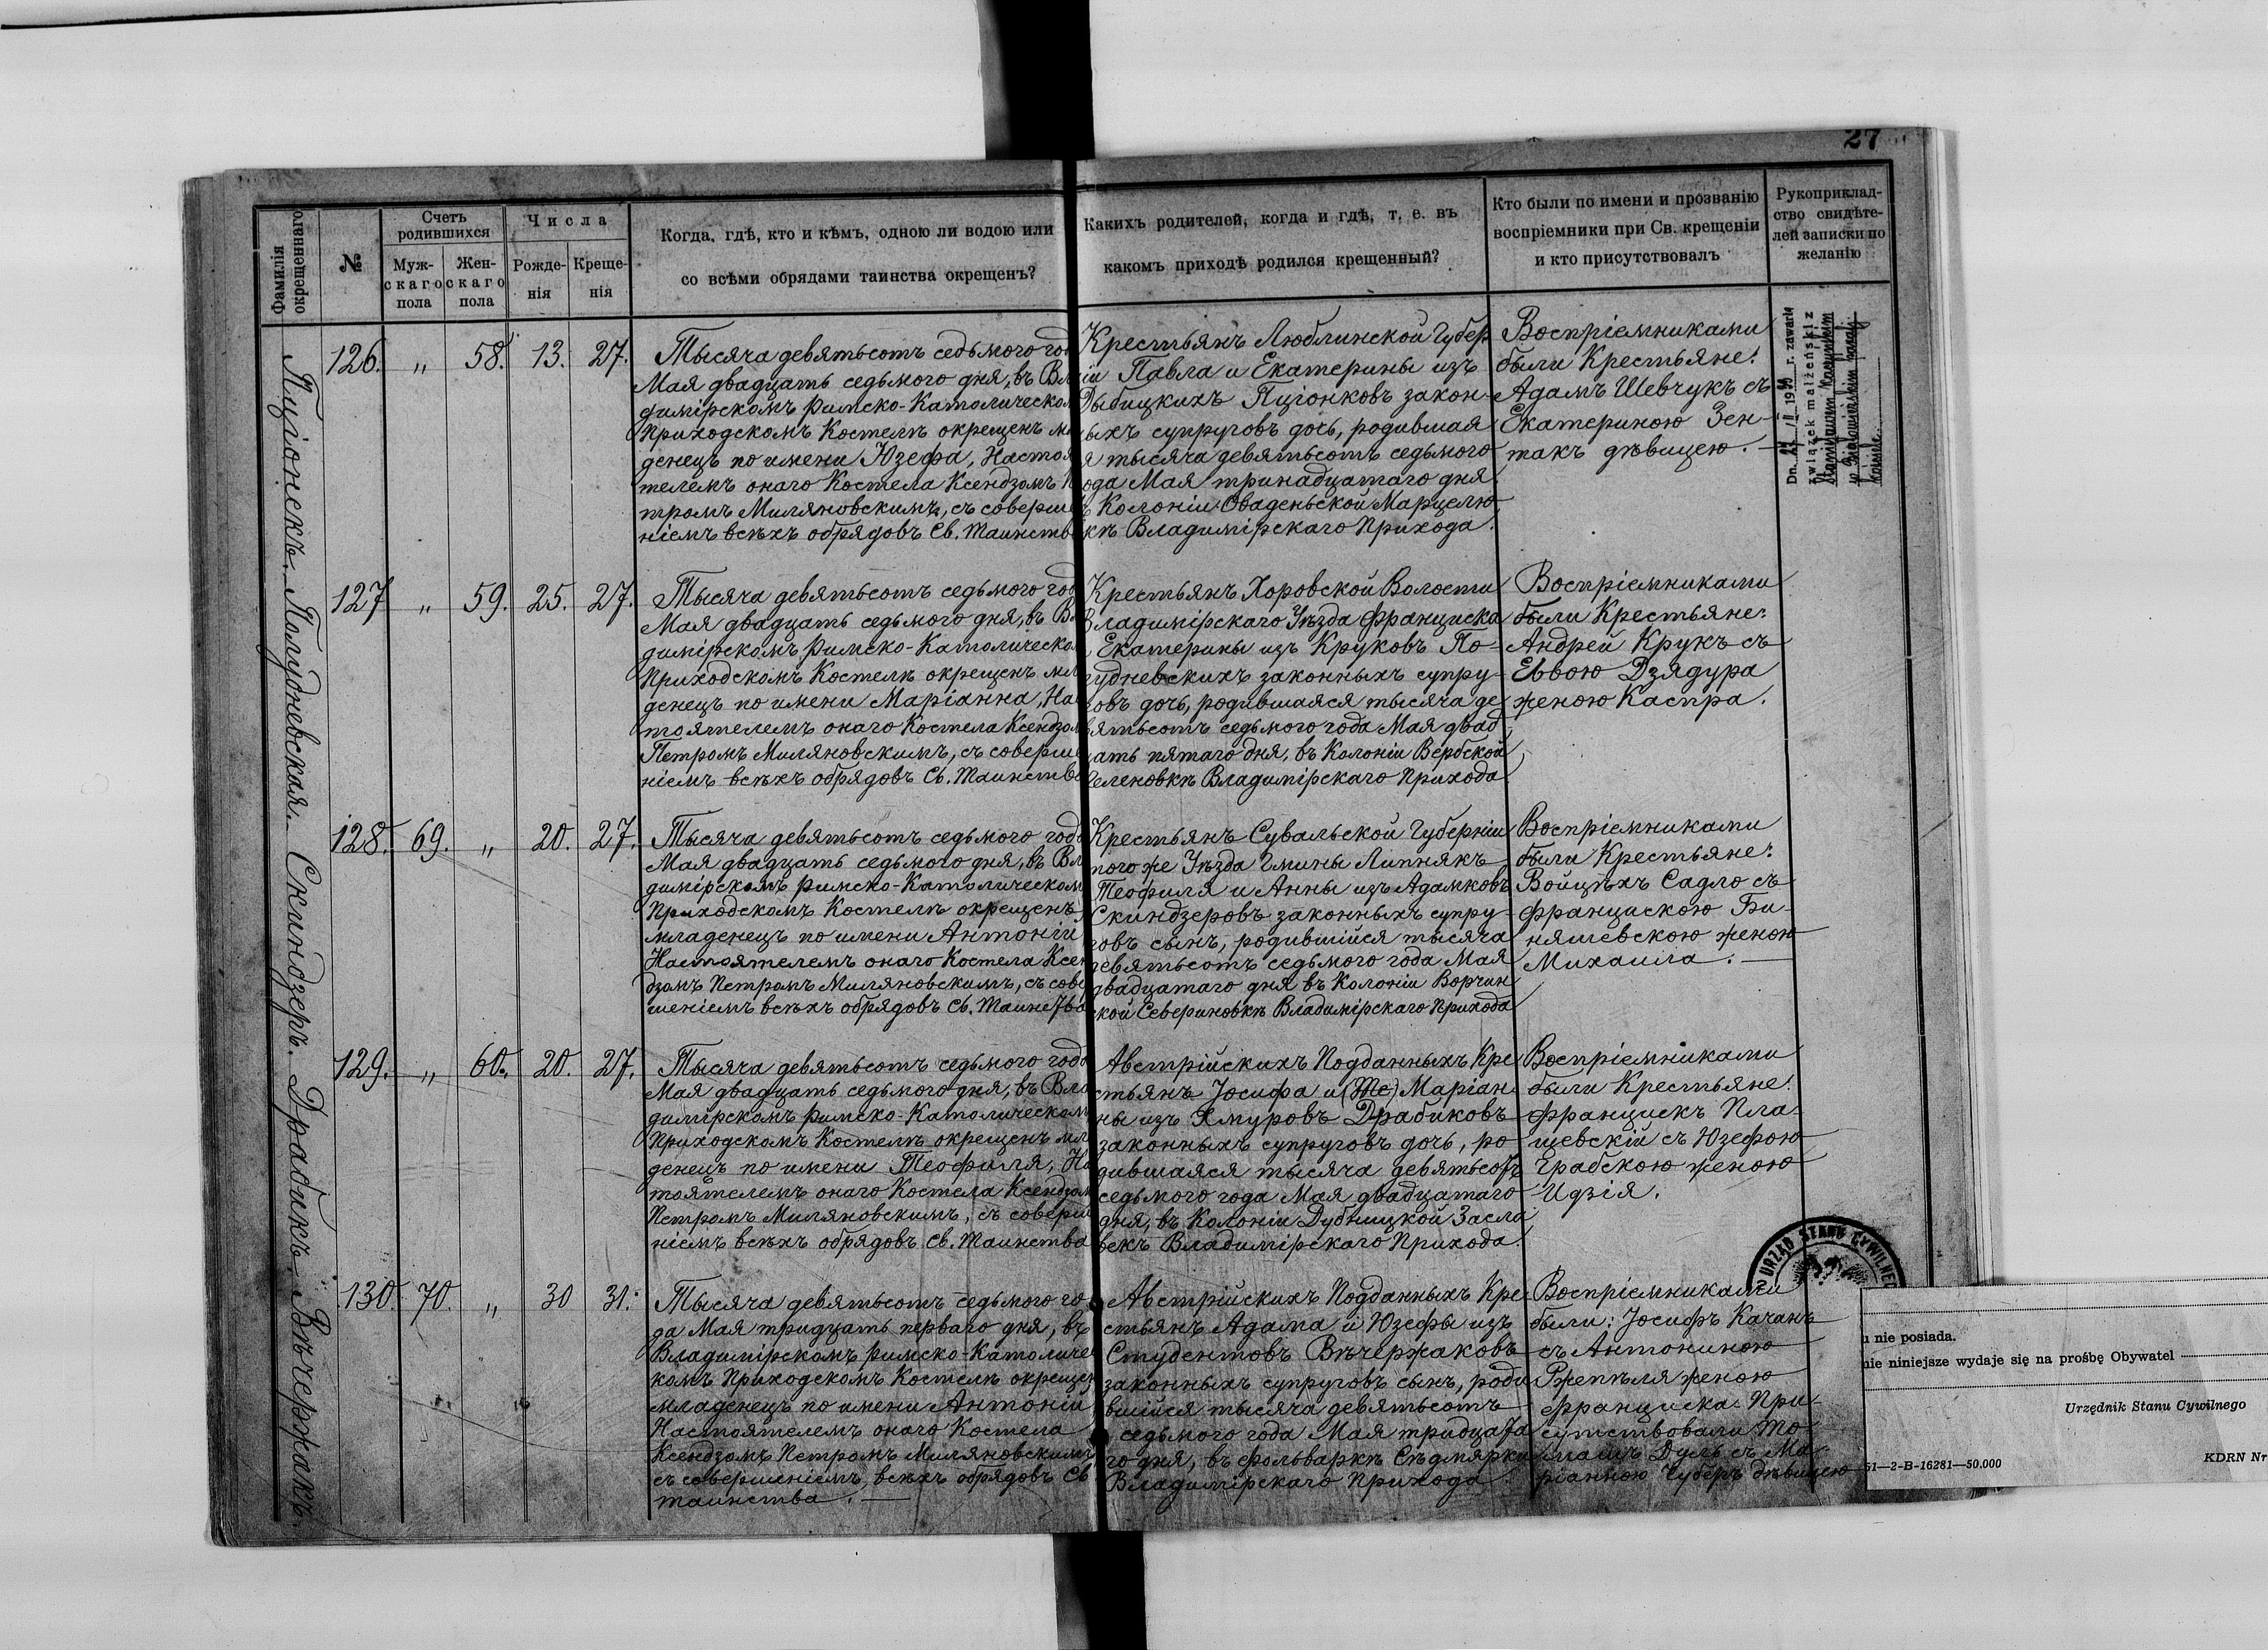 27
Фамилія окрещеннаго
№
Счетъ родившихся
Муж-
скаго
пола
Жен-
скаго
пола
Числа
Рожде-
нія
Креще-
нія
Когда, гдѣ, кто и кѣмъ, одною ли водою или
со всѣми обрядами таинства окрещенъ?
Какихъ родителей, когда и гдѣ, т. е. въ
какомъ приходѣ родился крещенный?
Кто были по имени и прозванію
воспріемники при Св. крещеніи
и кто присутствовалъ
Рукоприклад-
ство свидѣте-
лей записки по
желанію
Пціонекъ.
126. " 58. 13. 27.
Тысяча девятьсотъ седьмого год
Мая двадцать седьмого дня, въ Вла
димірскомъ Римско-Католическом
Приходскомъ Костелѣ окрещенъ мл
денецъ по имени Юзефа, Настоя
телемъ онаго Костела Ксендзомъ П
тромъ Миляновскимъ, съ соверше
ніемъ всѣхъ обрядовъ Св. Таинств
Крестьянъ Люблинской Губер
ніи Павла и Екатерины изъ
Дыбицкихъ Пціонковъ закон-
ыхъ супруговъ дочь, родившая
я тысяча девятьсотъ седьмого
ода Мая тринадцатаго дня
ъ Колоніи Оваденьской Марцелю
кѣ Владимірскаго Прихода.
Воспріемниками
были Крестьяне:
Адамъ Шевчукъ съ
Екатериною Зен-
такъ дѣвицею.
Dn. 27 II 19 r. zawarła
związek małżeński z
Полудневская.
127 " 59. 25. 27.
Тысяча девятьсотъ седьмого год
Мая двадцать седьмого дня, въ Вла
димірскомъ Римско-Католическо
Приходскомъ Костелѣ окрещенъ мла
денецъ по имени Маріанна, Нас
тоятелемъ онаго Костела Ксендзом
Петромъ Миляновскимъ, съ соверше
ніемъ всѣхъ обрядовъ Св. Таинства
Крестьянъ Хоровской Волости
Владимірскаго Уѣзда Франциска
Екатерины изъ Круковъ По-
лудневскихъ законныхъ супру-
говъ дочь, родившаяся тысяча де
вятьсотъ седьмого года Мая двад
цать пятаго дня, въ Колоніи Вербской
Зеленовкѣ Владимірскаго Прихода
Воспріемниками
были Крестьяне:
Андрей Крукъ съ
Евою Дзядура
женою Каспра.
Скиндзеръ.
128. 69. " 20. 27.
Тысяча девятьсотъ седьмого года
Мая двадцать седьмого дня, въ Вла
димірскомъ Римско-Католическом
Приходскомъ Костелѣ окрещенъ
младенецъ по имени Антоній
Настоятелемъ онаго Костела Ксен
дзомъ Петромъ Миляновскимъ, съ сове
шеніемъ всѣхъ обрядовъ Св. Таинства
Крестьянъ Сувальской Губерніи
того же Уѣзда Гмины Липнякъ
Теофиля и Анны изъ Адамковъ
Скиндзеровъ законныхъ супру-
говъ сынъ, родившійся тысяча
девятьсотъ седьмого года Мая
двадцатаго дня въ Колоніи Ворчин
ской Севериновкѣ Владимірскаго Прихода
Воспріемниками
были Крестьяне:
Войцѣхъ Садло съ
Францискою Би-
няшевскою женою
Михаила.
Драбикъ.
129. " 60. 20. 27.
Тысяча девятьсотъ седьмого года
Мая двадцать седьмого дня, въ Вла
димірскомъ Римско-Католическом
Приходскомъ Костелѣ окрещенъ мл
денецъ по имени Теофиля, На
тоятелемъ онаго Костела Ксендзом
Петромъ Миляновскимъ, съ соверш
ніемъ всѣхъ обрядовъ Св. Таинства
Австрійскихъ Подданныхъ Кре
стьянъ Іосифа и (Те) Маріан
ны изъ Хмуровъ Драбиковъ
законныхъ супруговъ дочь, ро
дившаяся тысяча девятьсотъ
седьмого года Мая двадцатаго
дня, въ Колоніи Дубницкой Засла
векъ Владимірскаго Прихода.
Воспріемниками
были Крестьяне:
Францискъ Пла-
щевскій съ Юзефою
Грабскою женою
Идзія.
Вѣчержакъ.
130. 70. " 30 31.
Тысяча девятьсотъ седьмого го-
да Мая тридцать перваго дня, въ
Владимірскомъ Римско-Католичес
комъ Приходскомъ Костелѣ окрещен
младенецъ по имени Антоній,
Настоятелемъ онаго Костела
Ксендзомъ Петромъ Миляновскимъ,
съ совершеніемъ, всѣхъ обрядовъ Св
таинства.
Австрійскихъ Подданныхъ Кре
стьянъ Адама и Юзефы изъ
Студентовъ Вѣчержаковъ
законныхъ супруговъ сынъ, роди
вшійся тысяча девятьсотъ
седьмого года Мая тридцата
го дня, въ Фольваркѣ Сѣдмярки
Владимірскаго Прихода
Воспріемниками
были: Іосифъ Качанъ
съ Антониною
Ржепѣля женою
Франциска. При-
сутствовали То-
машъ Дуль съ Ма-
ріанною Чуберъ дѣвицею
URZĄD STANU CYWILNEGO
u nie posiada.
nie niniejsze wydaje się na prośbę Obywatel
Urzędnik Stanu Cywilnego
51—2-B-16281—50.000
KDRN Nr